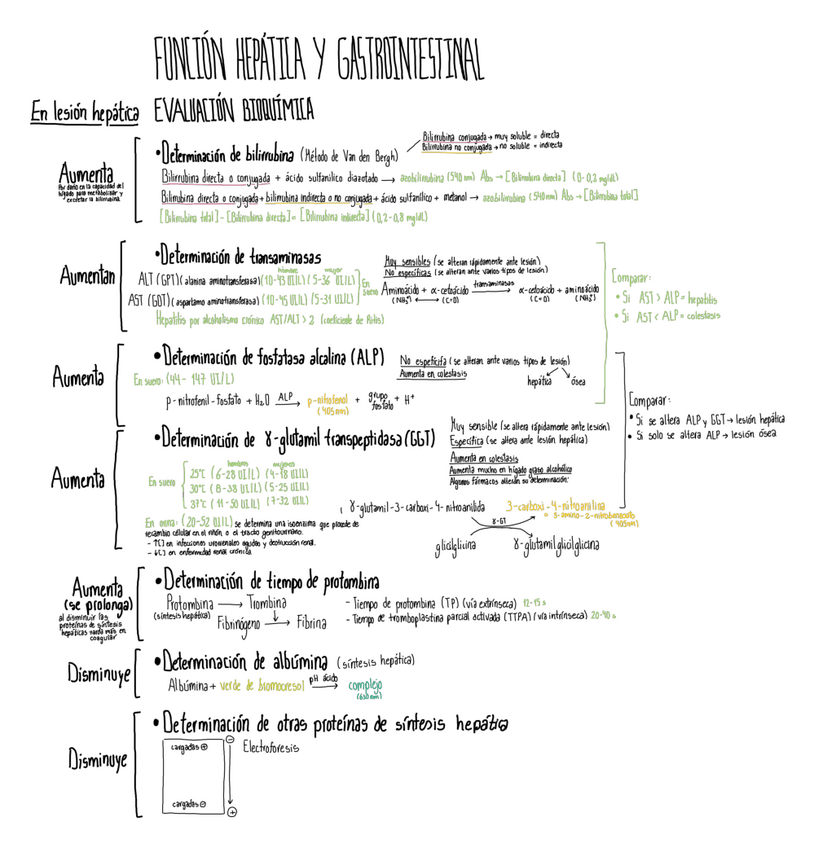 FUNCIÓN HEPÁTICA Y GASTROINTESTINAL
En lesión hepática EVALUACIÓN BIOQUÍMICA
Aumenta
Por daño en la capacidad del
hígado para metabolizar y
excretar la bilirrubina.
• Determinación de bilirrubina (Método de Van den Bergh)
Bilirrubina conjugada → muy soluble = directa
Bilirrubina no conjugada → no soluble = indirecta
Bilirrubina directa o conjugada + ácido sulfanílico diazotado → azobilirrubina (540 nm) Abs → [Bilirrubina directa] (0-0,2 mg/dL)
Bilirrubina directa o conjugada + bilirrubina indirecta o no conjugada + ácido sulfanílico + metanol → azobilirrubina (540 nm) Abs → [Bilirrubina total]
[Bilirrubina total] - [Bilirrubina directa] = [Bilirrubina indirecta] (0,2-0,8 mg/dL)
Aumentan
• Determinación de transaminasas
hombre mujer
ALT (GPT) (alanina aminotransferasa) (10-43 UI/L) (5-36 UI/L)
AST (GOT) (aspartamo aminotransferasa) (10-45 UI/L) (5-31 UI/L)
En suero
Hepatitis por alcoholismo crónico AST/ALT > 2 (coeficiente de Ritis)
Muy sensibles (se alteran rápidamente ante lesión)
No específicas (se alteran ante varios tipos de lesión)
Aminoácido + α-cetoácido transaminasas → α-cetoácido + aminoácido
(NH₂) ⟷ (C=O) (C=O) (NH₂)
Comparar:
• Si AST > ALP = hepatitis
• Si AST < ALP = colestasis
Aumenta
• Determinación de fosfatasa alcalina (ALP)
En suero: (44 - 147 UI/L)
No específica (se alteran ante varios tipos de lesión)
Aumenta en colestasis
hepática ósea
p-nitrofenil-fosfato + H₂O ALP → p-nitrofenol + grupo fosfato + H⁺
(405nm)
Comparar:
• Si se altera ALP y GGT → lesión hepática
• Si solo se altera ALP → lesión ósea
Aumenta
• Determinación de γ-glutamil transpeptidasa (GGT)
Muy sensible (se altera rápidamente ante lesión)
Específica (se altera ante lesión hepática)
Aumenta en colestasis
Aumenta mucho en hígado graso alcohólico
Algunos fármacos alteran su determinación:
hombres mujeres
En suero
25°C (6-28 UI/L) (4-18 UI/L)
30°C (8-38 UI/L) (5-25 UI/L)
37°C (11-50 UI/L) (7-32 UI/L)
En orina: (20-52 UI/L) se determina una isoenzima que procede de
recambio celular en el riñón o el tracto genitourinario.
- ↑[] en infecciones urorrenales agudas y destrucción renal.
- ↓[] en enfermedad renal crónica.
γ-glutamil-3-carboxi-4-nitroanilida 3-carboxi-4-nitroanilina
= 5-amino-2-nitrobenzoato
(405nm)
γ-GT
glicilglicina γ-glutamilglicilglicina
Aumenta
(se prolonga)
al disminuir las
proteínas de síntesis
hepáticas tarda más en
coagular
• Determinación de tiempo de protombina
Protombina → Trombina
(síntesis hepática)
Fibrinógeno → Fibrina
- Tiempo de protombina (TP) (vía extrínseca) 12-15 s
- Tiempo de tromboplastina parcial activada (TTPA) (vía intrínseca) 20-40 s
Disminuye
• Determinación de albúmina (síntesis hepática)
Albúmina + verde de bromocresol pH ácido → complejo
(630nm)
Disminuye
• Determinación de otras proteínas de síntesis hepática
cargados ⊕
⊖
Electroforesis
cargados ⊖
⊕